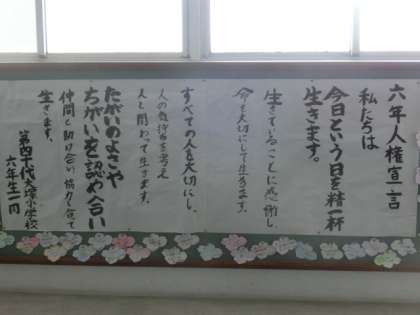 六年人権宣言
私たちは
今日という日を精一杯
生きます。
生きていることに感謝し
命を大切にして生きます。
すべての人を大切にし、
人の気持ちを考え
人と関わって生きます。
たがいのよさや
ちがいを認め合い
仲間と助け合い協力し合って
生きます。
第四十代大塚小学校
六年生一同